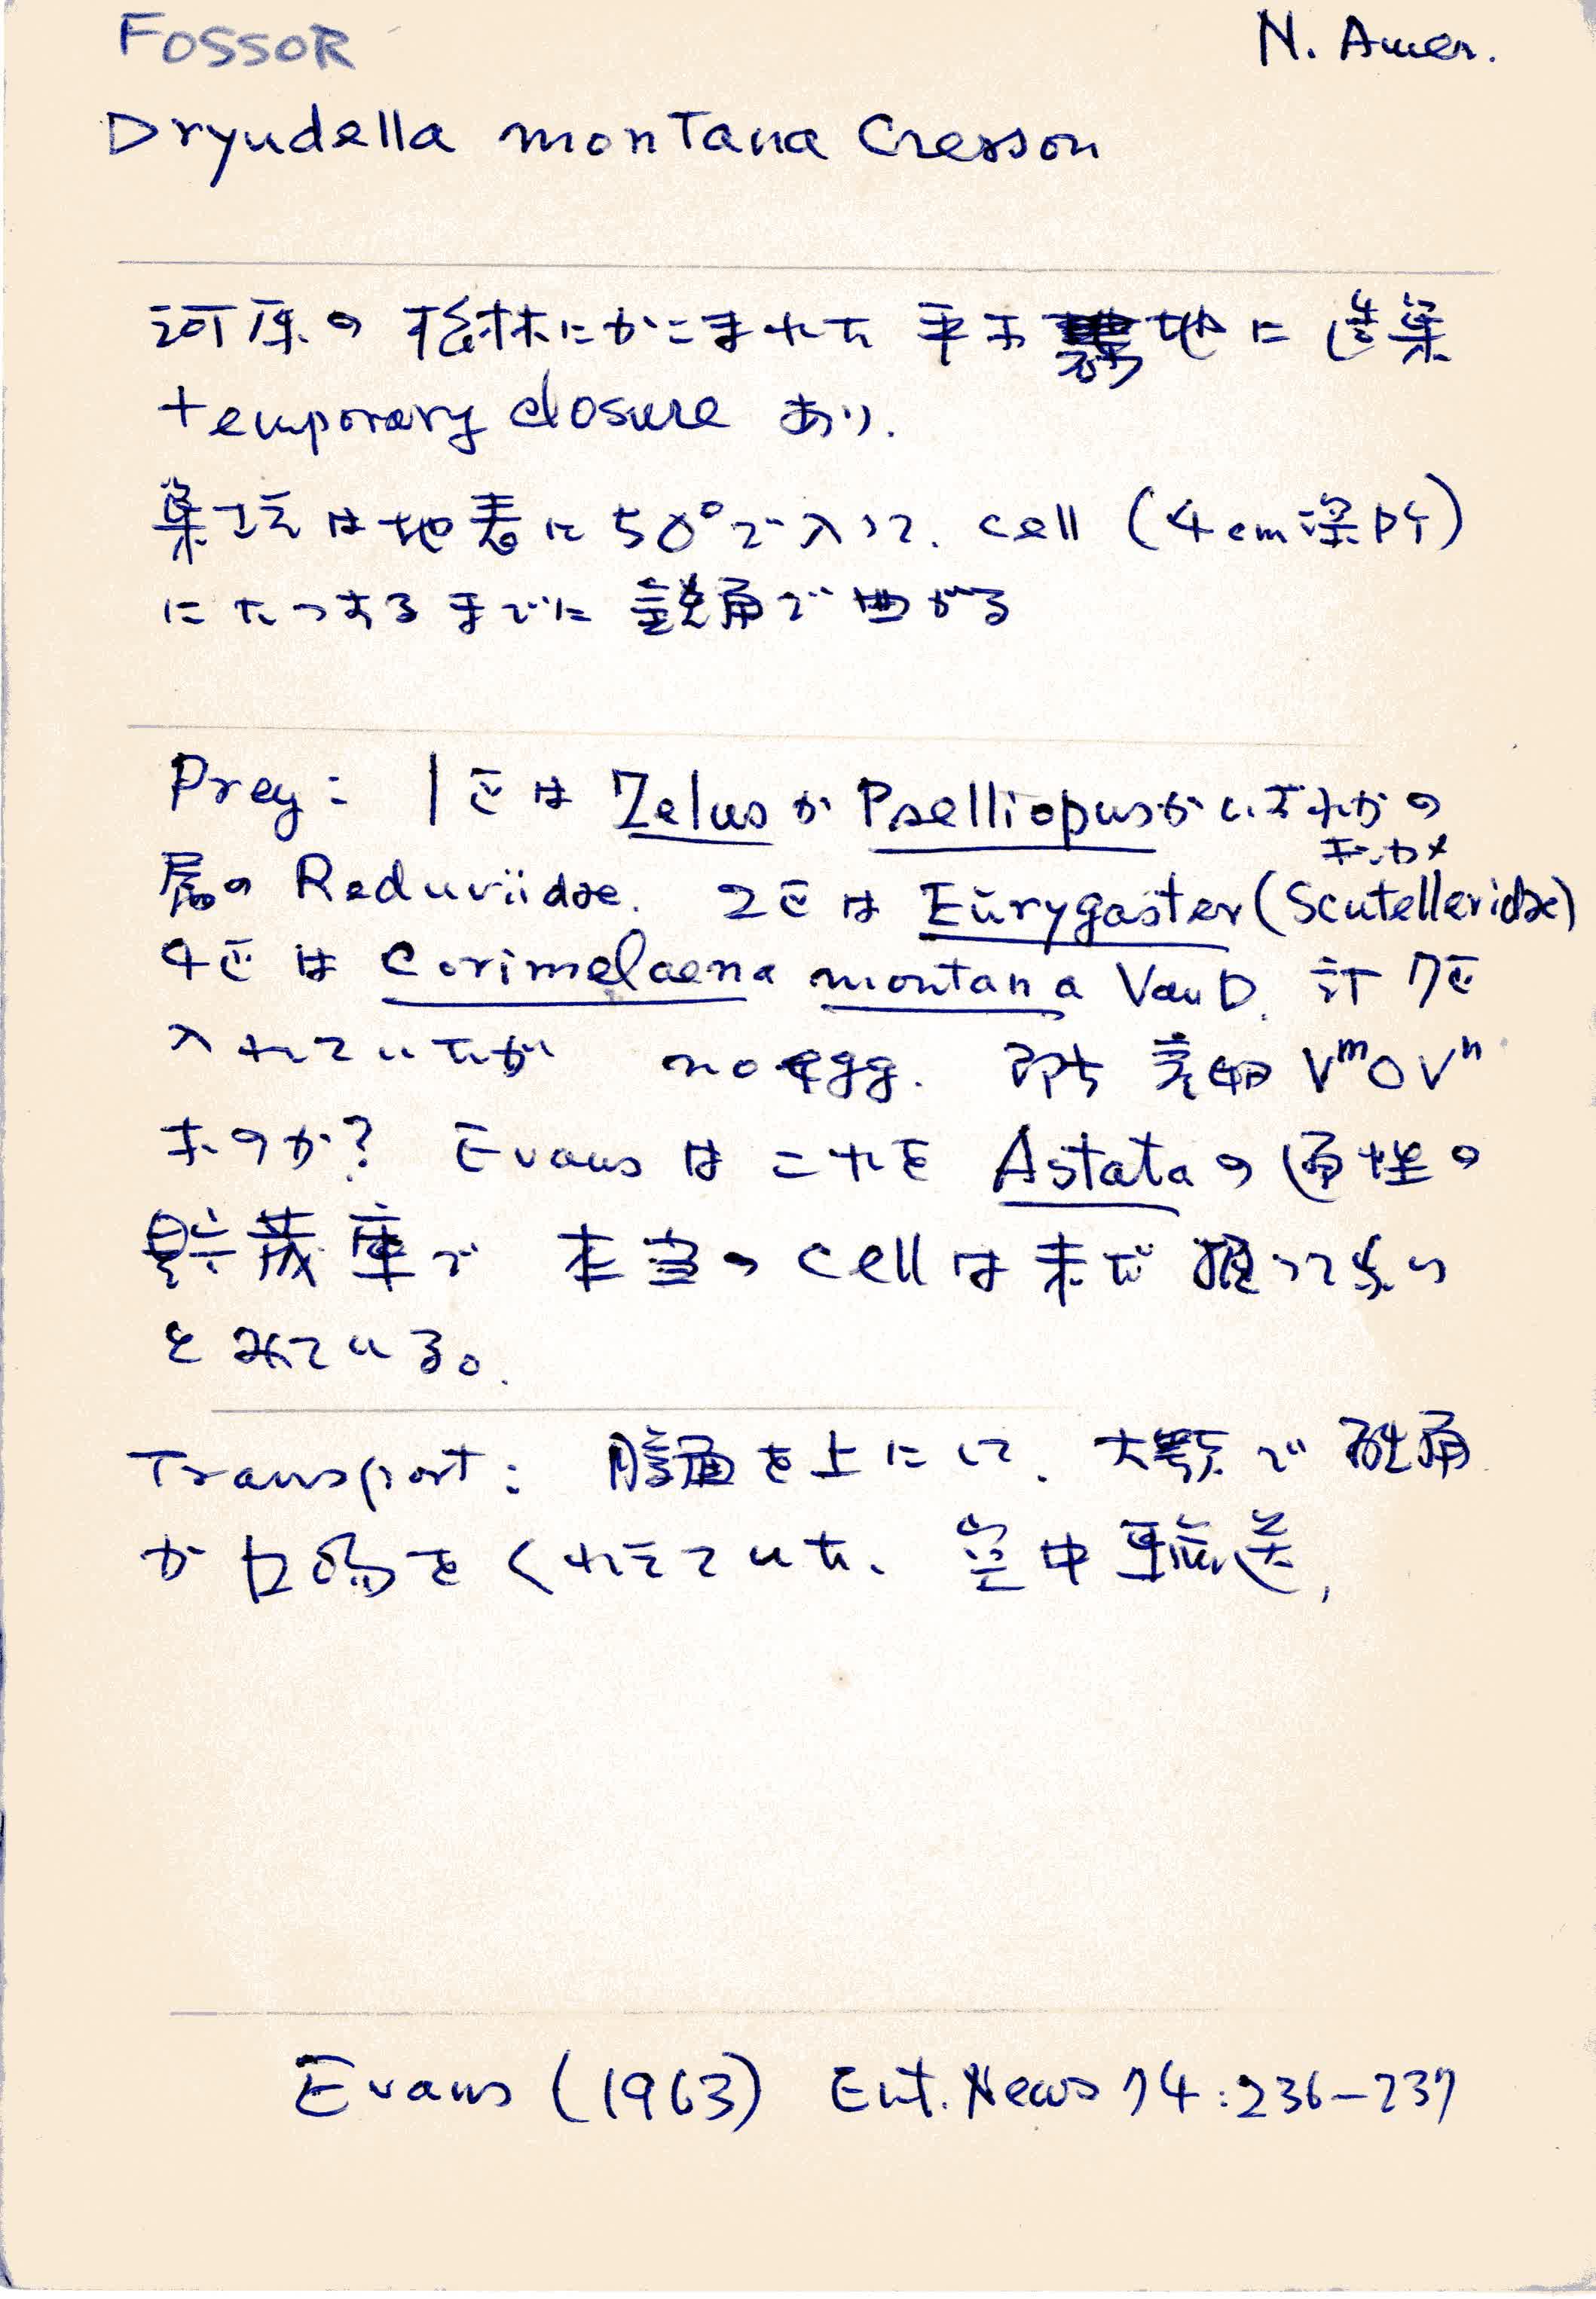 FOSSOR N. Amer.
Dryudella montana Cresson
河原の松林にかこまれた平な裸地に造巣
temporary closure あり.
巣坑は地表に50°で入って. cell (4cm深内外)
にたっするまでに鋭角で曲がる
Prey: 1匹は Zelus か Pselliopus かいずれかの
キンカメ
属の Reduviidae. 2匹は Eurygaster (Scutelleridae)
4匹は Corimelaena montana Van D. 計7匹
入れていたが no egg. 即ち産卵 VᵐOVⁿ
なのか? Evans はこれを Astata の通性の
貯蔵庫で 本当の cell は未だ掘ってない
とみている。
Transport: 腹面を上にして. 大顎で触角
か口吻をくわえていた. 空中輸送,
Evans (1963) Ent. News 74:236–237